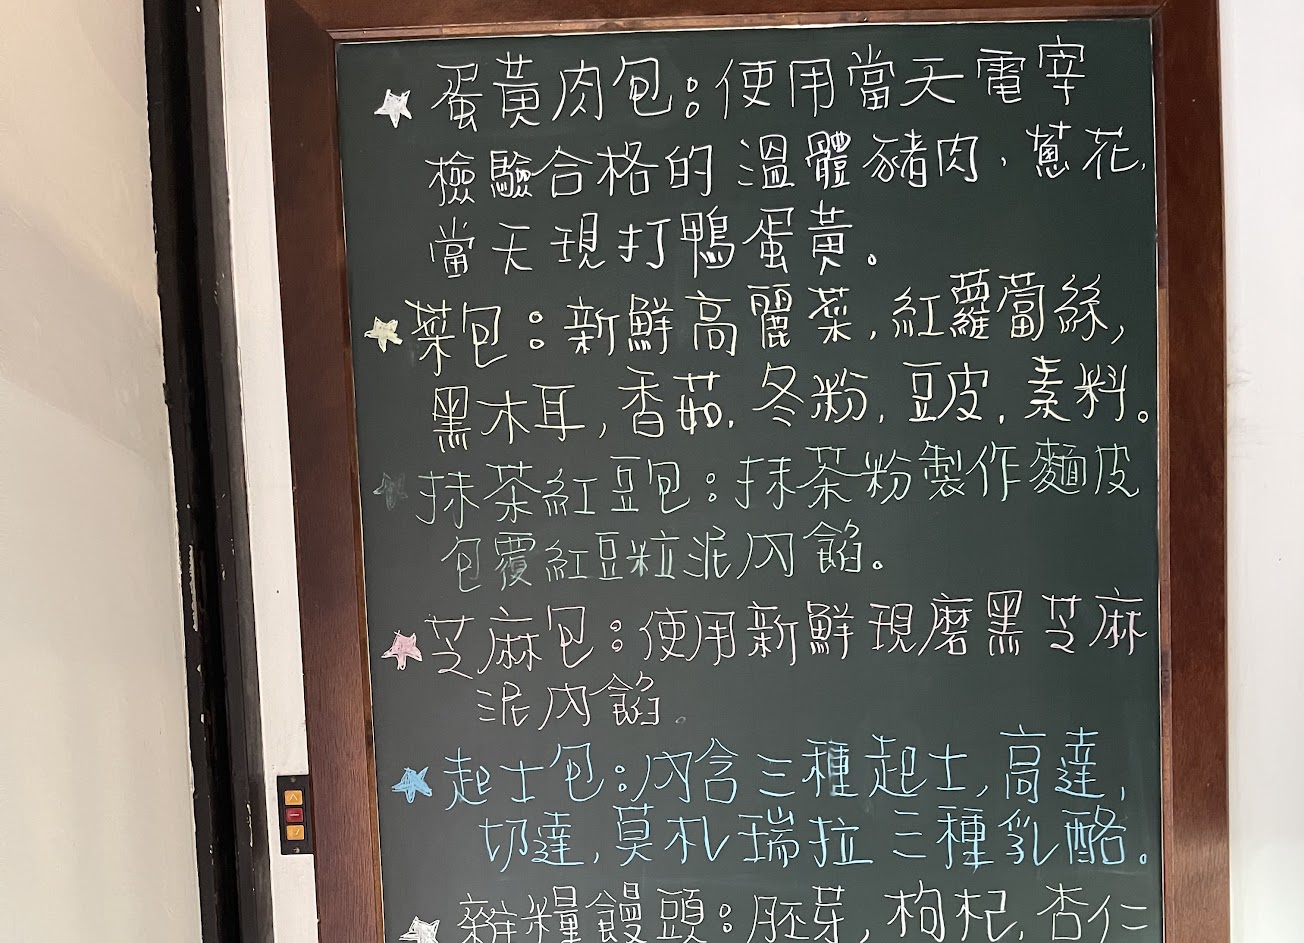 蛋黃肉包：使用當天電宰
檢驗合格的溫體豬肉，蔥花，
當天現打鴨蛋黃。
菜包：新鮮高麗菜，紅蘿蔔絲，
黑木耳，香菇，冬粉，豆皮，素料。
抹茶紅豆包：抹茶粉製作麵皮
包覆紅豆粒泥內餡。
芝麻包：使用新鮮現磨黑芝麻
泥內餡。
起士包：內含三種起士，高達，
切達，莫札瑞拉三種乳酪。
雜糧饅頭：胚芽，枸杞，杏仁